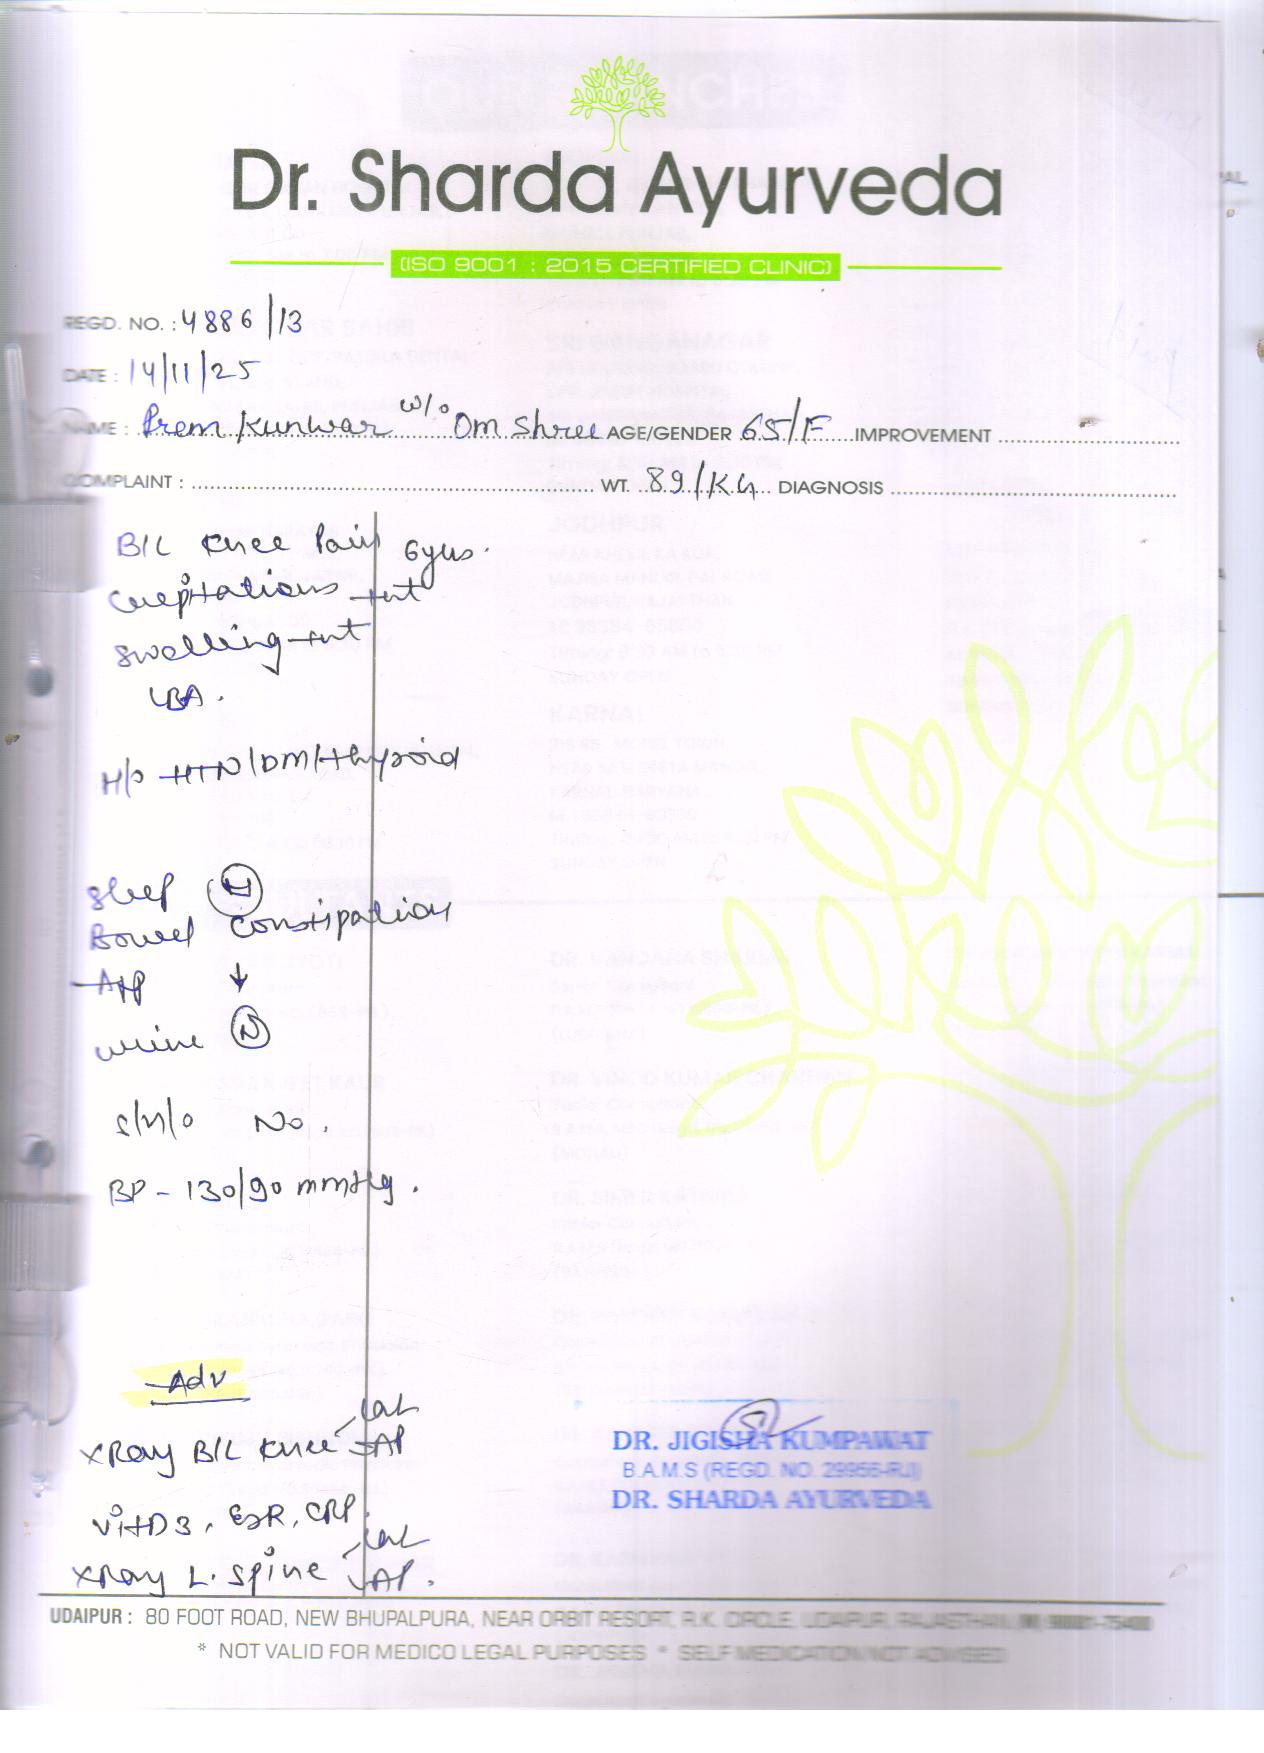 Dr. Sharda Ayurveda
(ISO 9001 : 2015 CERTIFIED CLINIC)
REGD. NO. : 4886/13
DATE : 14/11/25
NAME : Prem Kunwar w/o Om Shree AGE/GENDER 65/F IMPROVEMENT
COMPLAINT : WT. 89/KG DIAGNOSIS
B/L knee Pain 6yrs.
crepitations +nt
swelling +nt
LBA.
H/o HTN/DM/Thyroid
sleep N
Bowel Constipation
App ↓
urine N
S/H/o No.
BP - 130/90 mmHg.
Adv
XRay B/L knee Lat AP
vitD3, ESR, CRP.
XRay L. Spine Lat AP.
DR. JIGISHA KUMPAWAT
B.A.M.S (REGD. NO. 29956-RJ)
DR. SHARDA AYURVEDA
UDAIPUR : 80 FOOT ROAD, NEW BHUPALPURA, NEAR ORBIT RESORT, R.K. CIRCLE, UDAIPUR, RAJASTHAN
* NOT VALID FOR MEDICO LEGAL PURPOSES * SELF MEDICATION NOT ADVISED